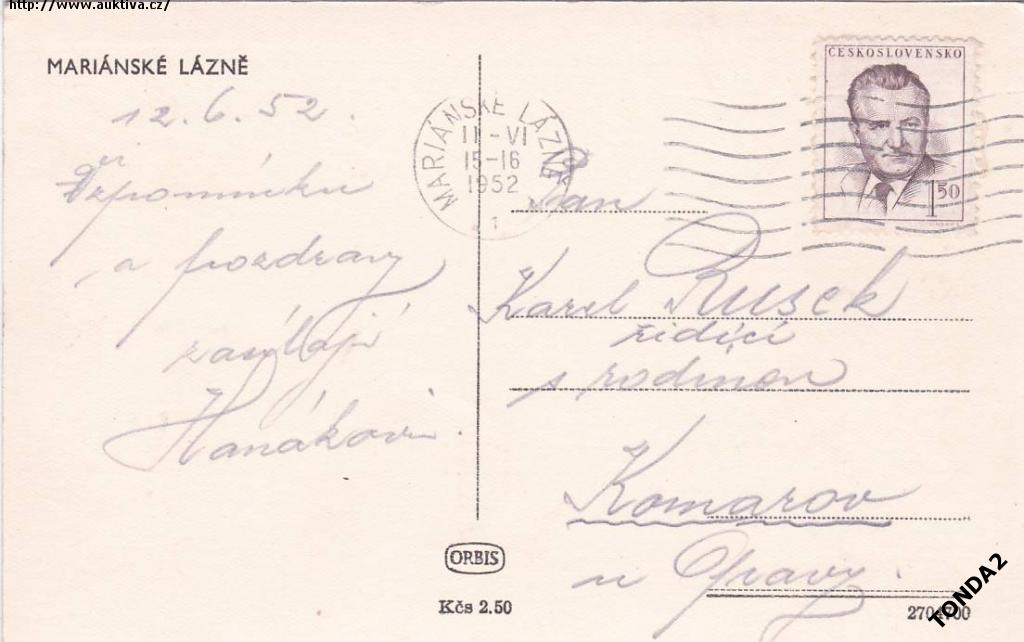 http://www.auktiva.cz/
MARIÁNSKÉ LÁZNĚ
12.6.52.
Vzpomínku
a pozdravy
zasílají
Hanákovi.
MARIÁNSKÉ LÁZNĚ
11-VI
15-16
1952
1
ČESKOSLOVENSKO
1 50
Pan
Karel Rusek
řídící
s rodinou
Komarov
u Opavy.
ORBIS
Kčs 2.50
2704700
TONDA2